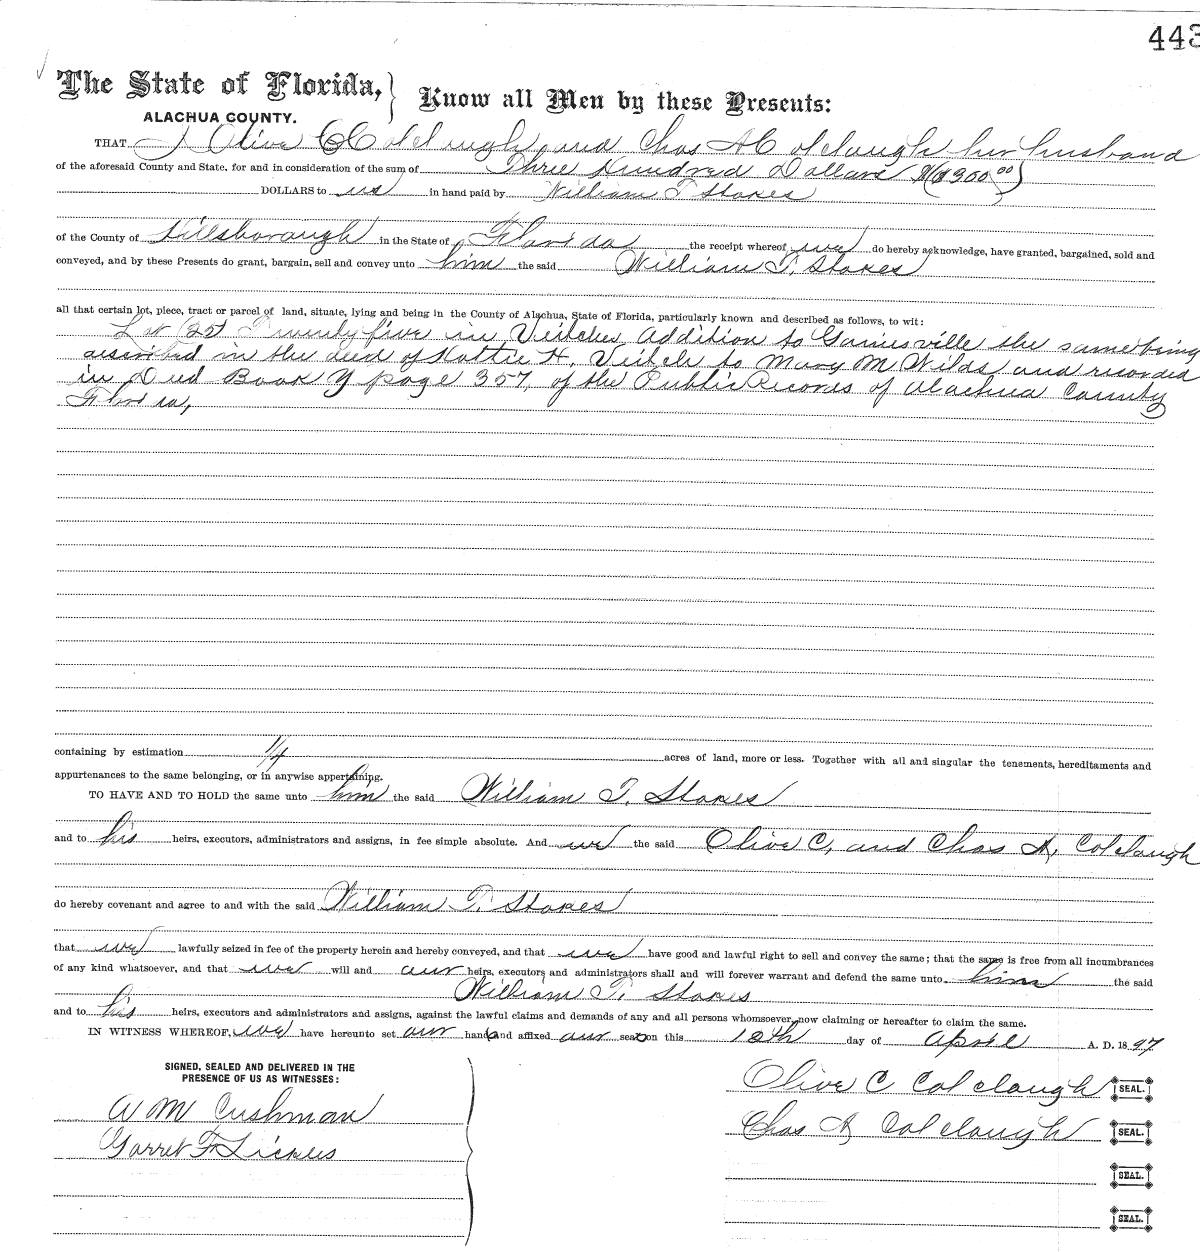 443
The State of Florida, } Know all Men by these Presents:
ALACHUA COUNTY.
THAT I Olive C Colclough and Chas A Colclough her husband
of the aforesaid County and State, for and in consideration of the sum of Three Hundred Dollars ($300.00)
DOLLARS to us in hand paid by William T. Stokes
of the County of Hillsborough in the State of Florida the receipt whereof we do hereby acknowledge, have granted, bargained, sold and
conveyed, and by these Presents do grant, bargain, sell and convey unto him the said William T. Stokes
all that certain lot, piece, tract or parcel of land, situate, lying and being in the County of Alachua, State of Florida, particularly known and described as follows, to wit:
Lot (25) Twenty five in Veitches Addition to Gainesville the same being
described in the deed of Hattie H. Veitch to Mary M Wilds and recorded
in Deed Book Y page 357, of the Public Records of Alachua County
Florida,
containing by estimation 1/4 acres of land, more or less. Together with all and singular the tenements, hereditaments and
appurtenances to the same belonging, or in anywise appertaining.
TO HAVE AND TO HOLD the same unto him the said William T. Stokes
and to his heirs, executors, administrators and assigns, in fee simple absolute. And we the said Olive C, and Chas A, Colclough
do hereby covenant and agree to and with the said William T. Stokes
that we lawfully seized in fee of the property herein and hereby conveyed, and that we have good and lawful right to sell and convey the same; that the same is free from all incumbrances
of any kind whatsoever, and that we will and our heirs, executors and administrators shall and will forever warrant and defend the same unto him the said
William T. Stokes
and to his heirs, executors and administrators and assigns, against the lawful claims and demands of any and all persons whomsoever, now claiming or hereafter to claim the same.
IN WITNESS WHEREOF, we have hereunto set our hands and affixed our seals on this 10th day of April A. D. 1897
SIGNED, SEALED AND DELIVERED IN THE
PRESENCE OF US AS WITNESSES:
A M Cushman
Garret F
Olive C Colclough SEAL.
Chas A Colclough SEAL.
SEAL.
SEAL.